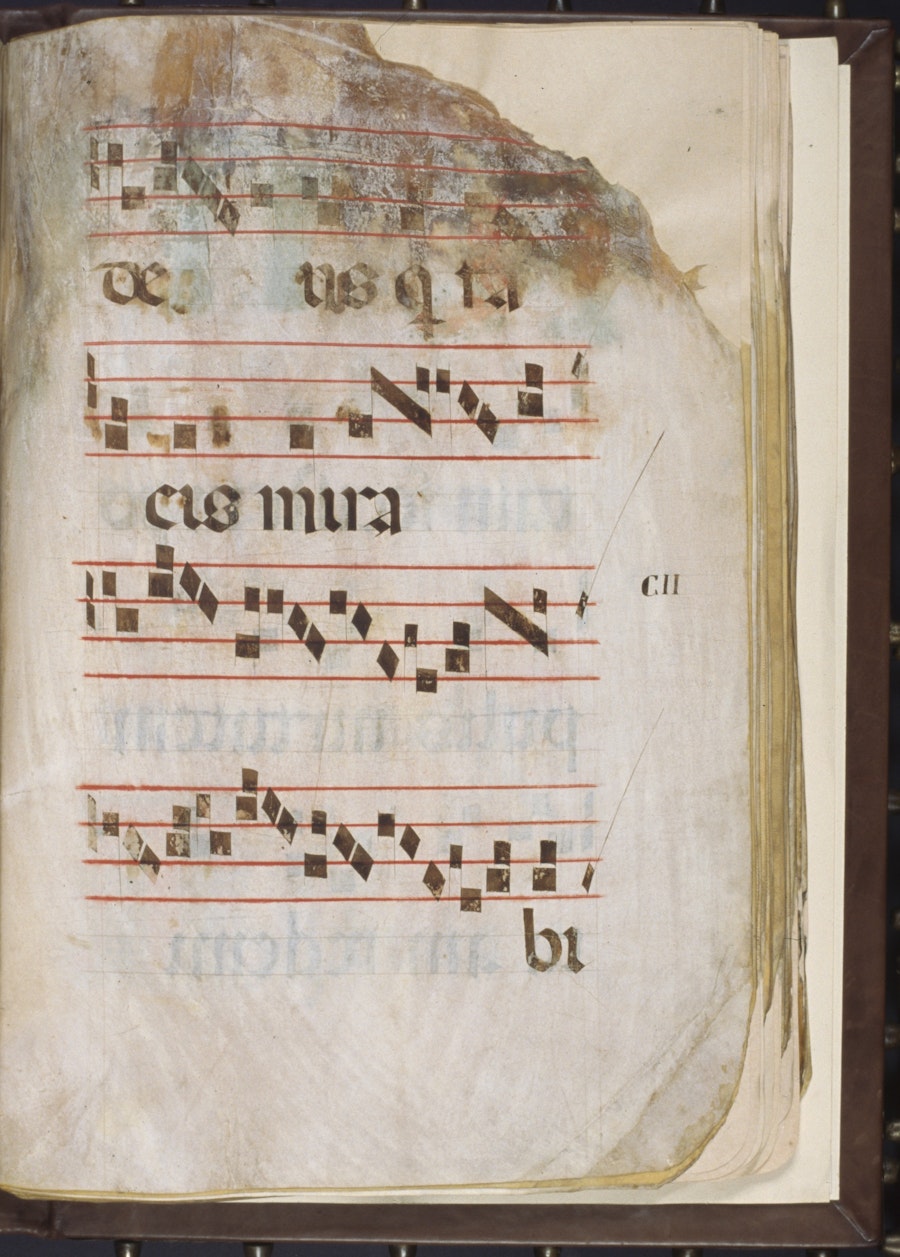 de us q fa
cis mira
CII
bi